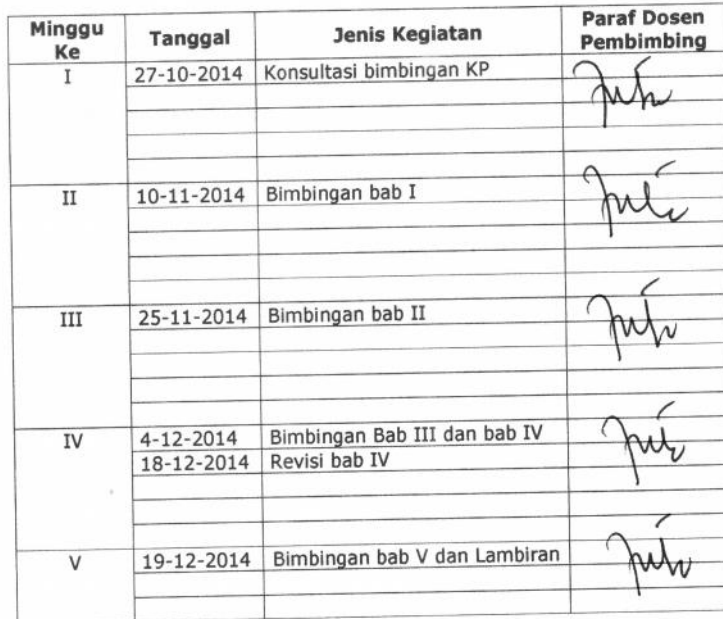 Minggu Ke Tanggal Jenis Kegiatan Paraf Dosen Pembimbing
I 27-10-2014 Konsultasi bimbingan KP
II 10-11-2014 Bimbingan bab I
III 25-11-2014 Bimbingan bab II
IV 4-12-2014 Bimbingan Bab III dan bab IV
18-12-2014 Revisi bab IV
V 19-12-2014 Bimbingan bab V dan Lambiran